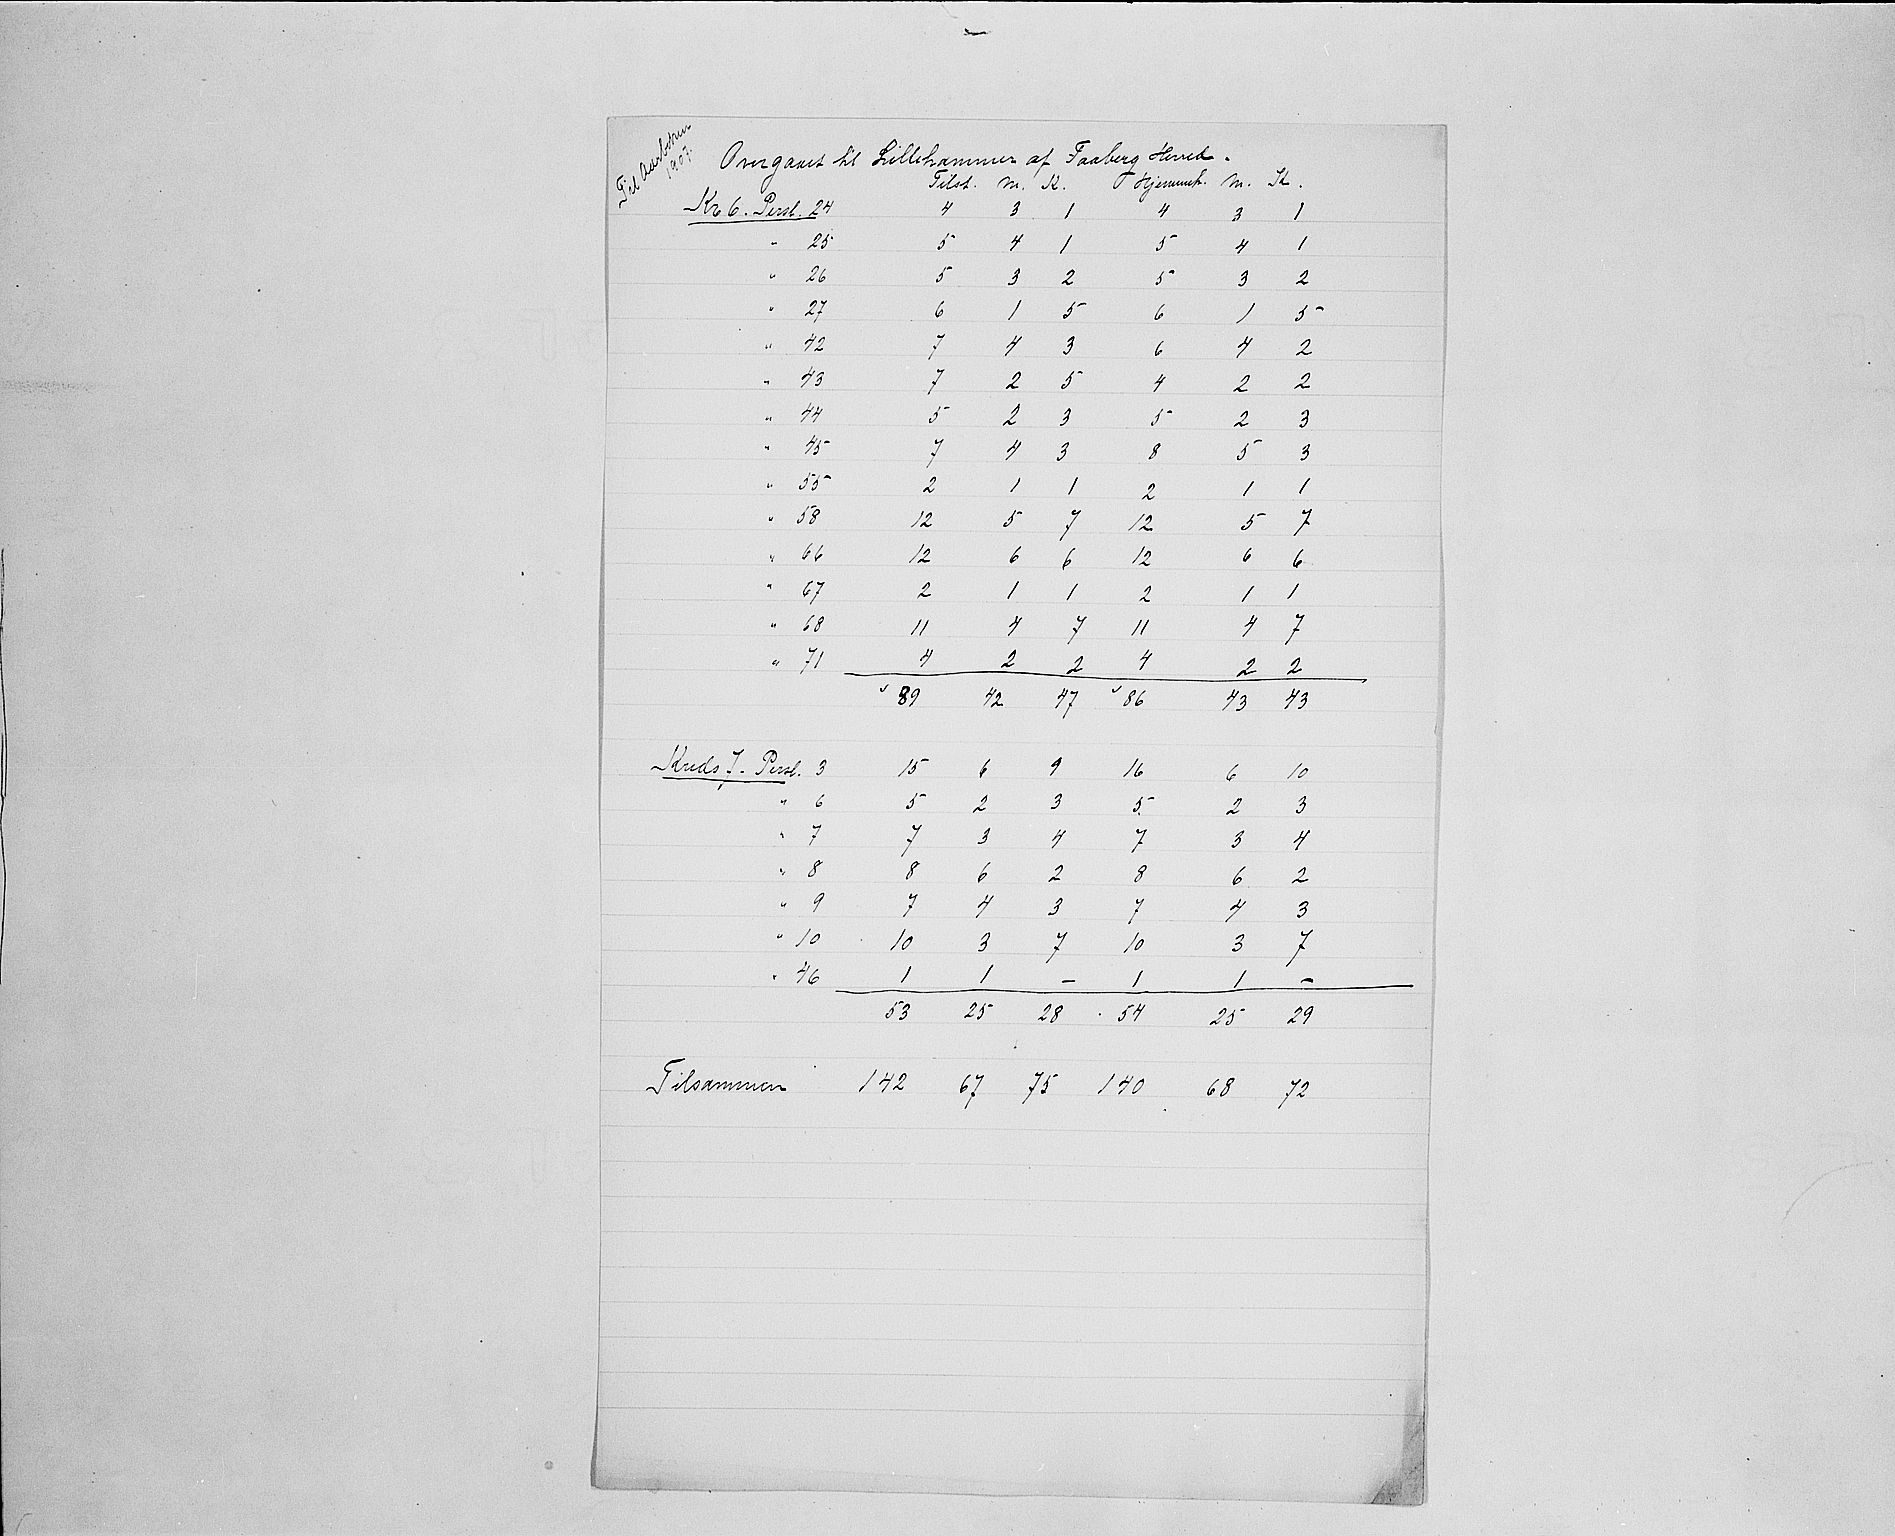 Overgaaet til Lillehammer af Faaberg Herred.
Tilst. M. K. Hjemmeh. M. K.
Kr 6. Persl. 24 4 3 1 4 3 1
" 25 5 4 1 5 4 1
" 26 5 3 2 5 3 2
" 27 6 1 5 6 1 5
" 42 7 4 3 6 4 2
" 43 7 2 5 4 2 2
" 44 5 2 3 5 2 3
" 45 7 4 3 8 5 3
" 55 2 1 1 2 1 1
" 58 12 5 7 12 5 7
" 66 12 6 6 12 6 6
" 67 2 1 1 2 1 1
" 68 11 4 7 11 4 7
" 71 4 2 2 4 2 2
89 42 47 86 43 43
Kreds 7. Persl. 3 15 6 9 16 6 10
" 6 5 2 3 5 2 3
" 7 7 3 4 7 3 4
" 8 8 6 2 8 6 2
" 9 7 4 3 7 4 3
" 10 10 3 7 10 3 7
" 46 1 1 – 1 1 –
53 25 28 54 25 29
Tilsammen 142 67 75 140 68 72